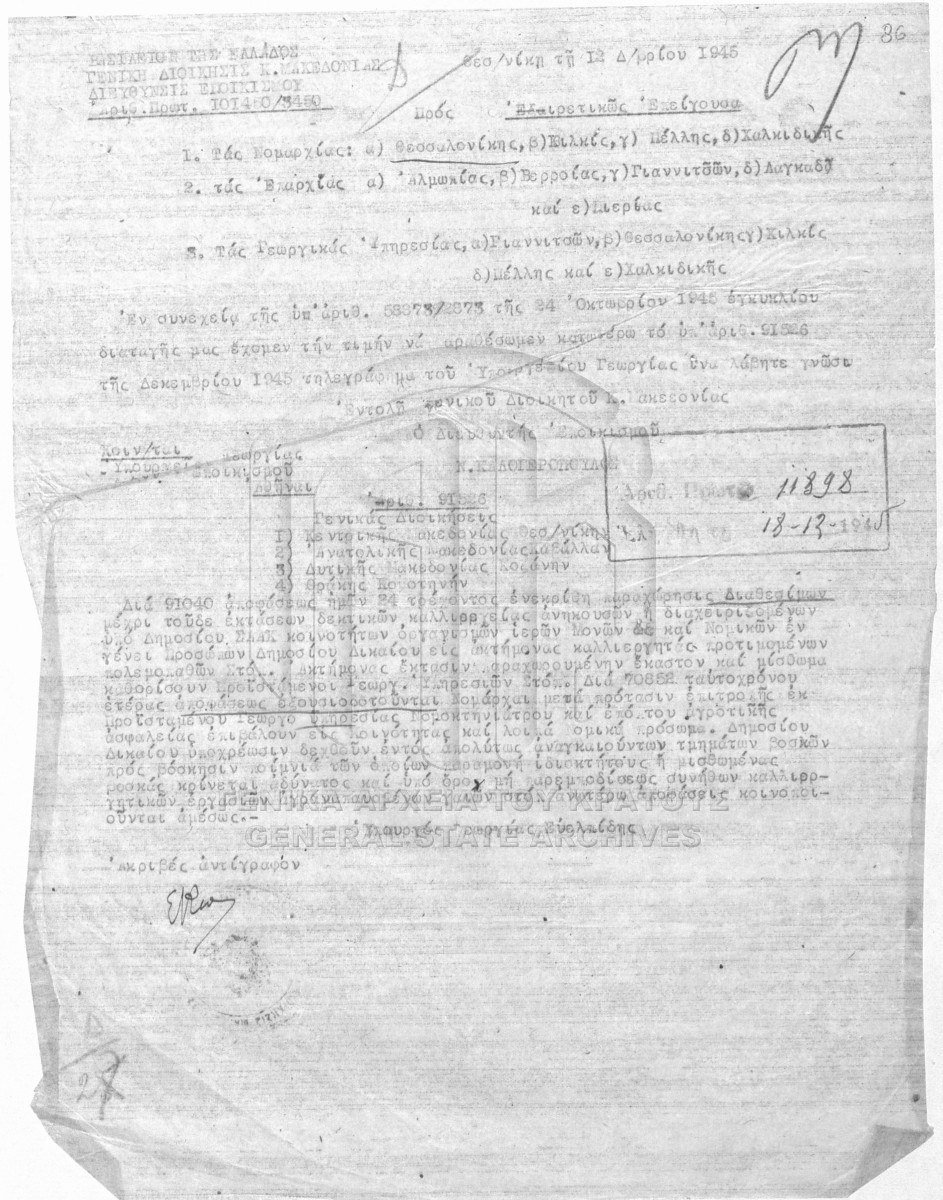 86
ΒΑΣΙΛΕΙΟΝ ΤΗΣ ΕΛΛΑΔΟΣ
ΓΕΝΙΚΗ ΔΙΟΙΚΗΣΙΣ Κ.ΜΑΚΕΔΟΝΙΑΣ
ΔΙΕΥΘΥΝΣΙΣ ΕΠΟΙΚΙΣΜΟΥ
Ἀριθ.Πρωτ. 101450/3450
Θεσ/νίκη τῇ 12 Δ/μρίου 1945
Πρός Ἐξαιρετικῶς Ἐπείγουσα
1. Τάς Νομαρχίας: α) Θεσσαλονίκης,β)Κιλκίς,γ) Πέλλης,δ)Χαλκιδικῆς
2. τάς Ἐπαρχίας α) Ἀλμωπίας,β)Βερροίας,γ)Γιαννιτσῶν,δ)Λαγκαδᾶ
καί ε)Πιερίας
3. Τάς Γεωργικάς Ὑπηρεσίας,α)Γιαννιτσῶν,β)Θεσσαλονίκηςγ)Κιλκίς
δ)Πέλλης καί ε)Χαλκιδικῆς
Ἐν συνεχείᾳ τῆς ὑπ'ἀριθ. 58373/2873 τῆς 24 Ὀκτωβρίου 1945 ἐγκυκλίου
διαταγῆς μας ἔχομεν τήν τιμήν νά παραθέσωμεν κατωτέρω τό ὑπ'ἀριθ.91526
τῆς Δεκεμβρίου 1945 τηλεγράφημα τοῦ Ὑπουργείου Γεωργίας ἵνα λάβητε γνῶσι
Ἐντολῇ Γενικοῦ Διοικητοῦ Κ.Μακεδονίας
Ὁ Διευθυντής Ἐποικισμοῦ
Κοιν/ται
Ὑπουργεῖ Γεωργίας
Ἐποικισμοῦ
Ἀθήνας
Ν.ΚΑΛΟΓΕΡΟΠΟΥΛΟΣ
Ἀριθ. Πρωτ. 11898
Ἐλήφθη τῇ 18-12-1945
Ἀριθ. 91526
Γενικάς Διοικήσεις
1) Κεντρικῆς Μακεδονίας Θεσ/νίκην
2) Ἀνατολικῆς Μακεδονίας Καβάλλαν
3) Δυτικῆς Μακεδονίας Κοζάνην
4) Θράκης Κομοτηνήν
Διά 91040 ἀποφάσεως ἡμῶν 24 τρέχοντος ἐνεκρίθη παραχώρησις Διαθεσίμων
μέχρι τοῦδε ἐκτάσεων δεκτικῶν καλλιεργείας ἀνηκουσῶν ἤ διαχειριζομένων
ὑπό Δημοσίου ΣΑΑΚ κοινοτήτων ὀργανισμῶν ἱερῶν Μονῶν ὡς καί Νομικῶν ἐν
γένει Προσώπων Δημοσίου Δικαίου εἰς ἀκτήμονας καλλιεργητάς προτιμομένων
πολεμοπαθῶν Στόπ. Ἀκτήμονας ἔκτασιν παραχωρουμένην ἕκαστον καί μίσθωμα
καθορίσουν Προϊστάμενοι Γεωργ. Ὑπηρεσιῶν Στόπ. Διά 70852 ταὐτοχρόνου
ἑτέρας ἀποφάσεως ἐξουσιοδοτοῦνται Νομάρχαι μετά πρότασιν ἐπιτροπῆς ἐκ
Προϊσταμένου Γεωργο Ὑπηρεσίας Νομοκτηνιάτρου καί ἐπό του ἀγροτικῆς
ἀσφαλείας ἐπιβάλουν εἰς Κοινότητας καί λοιπά νομικά πρόσωπα. Δημοσίου
Δικαίου ὑποχρέωσιν δεχθοῦν ἐντός ἀπολύτως ἀναγκαιούντων τμημάτων βοσκῶν
πρός βόσκησιν ποίμνιά τῶν ὁποίων παραμονή ἰδιοκτήτους ἤ μισθωμένας
βοσκάς κρίνεται ἀδύνατος καί ὑπό ὅρον μή παρεμποδίσεως συνήθων καλλιερ-
γητικῶν ἐργασιῶν ἀγραναπαυομένων γαιῶν στόπ ἀνωτέρω ἀποφάσεις κοινοποι-
οῦνται ἀμέσως.-
Ὑπουργός Γεωργίας, Εὐελπίδης
ΓΕΝΙΚΑ ΑΡΧΕΙΑ ΤΟΥ ΚΡΑΤΟΥΣ
GENERAL STATE ARCHIVES
Ἀκριβές ἀντίγραφον